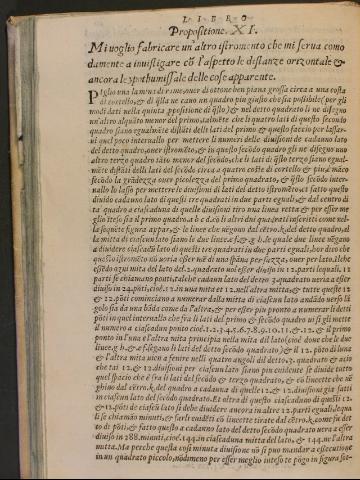 LIBRO
Propositione. XI.
Mi voglio fabricare un'altro istromento che mi serua como
damente a inuestigare cõ l'aspetto le distanze orizontale &
ancora le ypothumissale delle cose apparente.
PIglio una lamina di rame, ouer di ottone ben piana grossa circa a una costa
di cortello, & di qlla ne cauo un quadro piu giusto che sia possibile (per gli
modi dati nella quinta propositione di qsto) & nel detto quadrato li ne disegno
un'altro alquãto menor del primo, talmẽte che li quatro lati di questo secondo
quadro siano egualmẽte distãti delli lati del primo & questo faccio per lassar
ui quel poco interuallo per mettere li numeri delle diuisioni de cadauno lato
del detto quadro, ouer istromẽto, & in questo secõdo quadro gli ne disegno uno
altro terzo quadro tãto menor del secõdo, che li lati di qsto terzo siano egual-
mẽte distãti delli lati del secõdo circa a quatro coste di cortello & piu & mãco
secõdo la grãdezza ouer picolezza del primo quadrato, & qsto secõdo inter-
uallo lo lasso per mettere le diuisioni di lati del detto istromẽto, et fatto questo
diuido cadauno lato di questi tre quadrati in due parti eguali, & dal centro di
ta' quadro a ciascaduna di quelle diuisioni tiro una linea retta & per esser me
glio inteso sia il primo quadro. a b c d. & li altri dui quadrati inscritti come nel-
la sequẽte figura appar, & le linee che uẽgono dal cẽtro. k. del detto quadro, al
la mitta di ciascun lato siano le due linee. e f, & g h. le quale due linee uẽgono
a diuidere ciascaũ lato di questi tre quadrati in due parti eguali, hor dico che
questo istromẽto nõ uoria esser mẽ di una spãna per fazza, ouer per lato, ilche
essẽdo ogni mita del lato del. 2. quadrato uol esser diuiso in 12. parti lequali. 12
parti se chiamano ponti, talche cadaun lato del detto. 3. quadrato ueria a esser
diuiso in 24. põti, cioe. 12 in una mita et 12. nell'altra mitta, & tutte questi 12
& 12. põti cominciano a numerar dalla mitta di ciascun lato andãdo uerso lã
golo sia da una bãda come da l'altra, & per esser piu pronto a numerar li detti
põti in quel interuallo che fra li lati del primo & secõdo quadro ui si gli mette
il numero a ciascadun ponto cioe. 1. 2. 3. 4. 5. 6. 7. 8. 9. 10. 11. & 12. & il primo
ponto in l'una e l'altra mita principia nella mita dil lato (cioe doue che le due
linee. g h. & e f. segano li lati del detto secõdo quadrato) & il 12. põto di luna
& l'altra mita uien a fenire nelli quatro angoli dil detto. 3. quadrato & acio
che tai 12. & 12. diuisioni per ciascun lato siano piu euidente se diuide tutto
quel spacio che è fra li lati del secõdo & terzo quadrato, & cõ lineette che uẽ
ghino dal cẽtro. k. dal quadro a cadauna di quelle 12 & 12. diuisioni gia fatti
in ciascun lato del secõdo quadrato. Et oltra di questo ciascaduno di questi 12.
& 12. põti de ciascũ lato si debe diuidere ancora in altre 12. parti eguali, lequa
li se chiamão minuti, & farse uoriã cõ lineette tirate dal cẽtro. k. come fu det
to di põti, & fatto questo a cadauno lato del detto secõdo quadrato uera a esser
diuiso in 288. minuti, cioe. 144. in ciascaduna mitta del lato, & 144. ne l'altra
mitta. Ma perche questa cosi minuta diuisione nõ si puo mandar a esecutione
in un quadrato piccolo, nõdimeno per esser meglio inteso te põgo in figura sot-